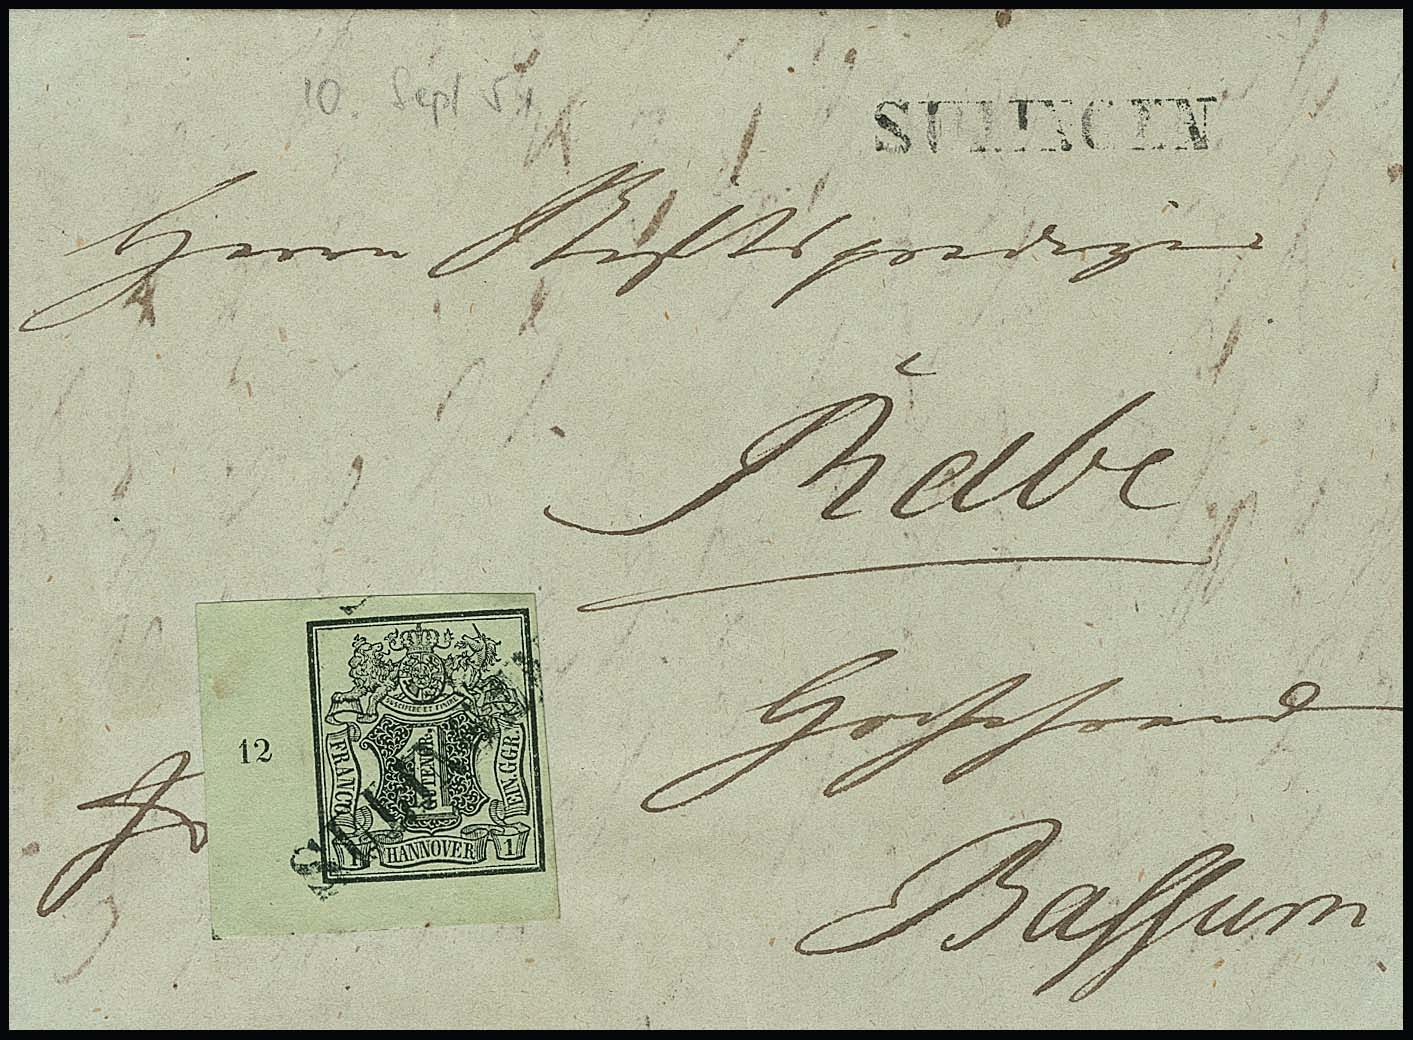 10. Sept 51
SULINGEN
Herrn Stiftsprediger
Rabe
Hochehrwürd
Bassum
fr
12
SUSCIPERE ET FINIRE
FRANCO
1 GUTENGR.
EIN.GGR.
1 HANNOVER 1
SULINGEN